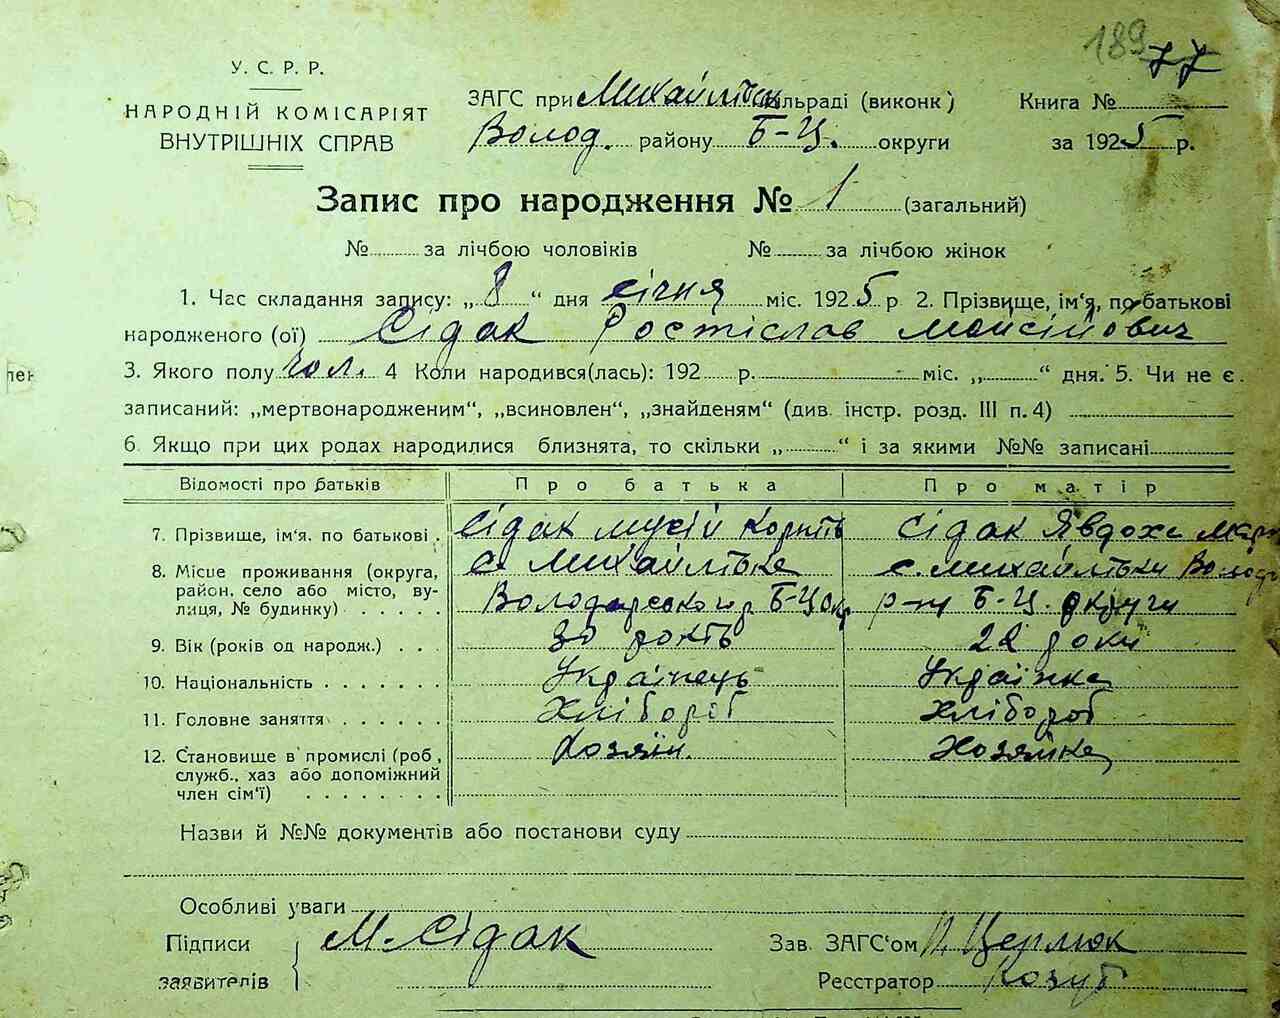 189 77
У. С. Р. Р.
НАРОДНІЙ КОМІСАРІЯТ
ВНУТРІШНІХ СПРАВ
ЗАГС при Михайлівск сільраді (виконк)
Волод. району Б-Ц. округи
Книга №
за 1925 р.
Запис про народження № 1 (загальний)
№ за лічбою чоловіків № за лічбою жінок
1. Час складання запису: „ 8 “ дня січня міс. 1925 р 2. Прізвище, ім'я, по батькові
народженого (ої) Сідак Ростіслав Мойсійович
3. Якого полу чол. 4 Коли народився(лась): 192 р. міс. „ “ дня. 5. Чи не є
записаний: „мертвонародженим“, „всиновлен“, „знайденям“ (див. інстр. розд. III п. 4)
6. Якщо при цих родах народилися близнята, то скільки „ “ і за якими №№ записані
Відомості про батьків Про батька Про матір
7. Прізвище, ім'я. по батькові . Сідак Мусій Сідак Явдоха
8. Місце проживання (округа, с. Михайлівка с. Михайлівки Волод
район. село або місто, вулиця, № будинку) Володарского р Б-Ц ок р-ну Б-Ц. округи
9. Вік (років од народж.) . . . 30 років 22 роки
10. Національність . . . . . . . Українець Українка
11. Головне заняття . . . . . . Хлібороб Хлібороб
12. Становище в промислі (роб, Хозяін. Хозяйка
служб., хаз або допоміжний
член сім'ї) . . . . . . . .
Назви й №№ документів або постанови суду
Особливі уваги
Підписи М. Сідак Зав. ЗАГС'ом
заявителів Ресстратор Козуб